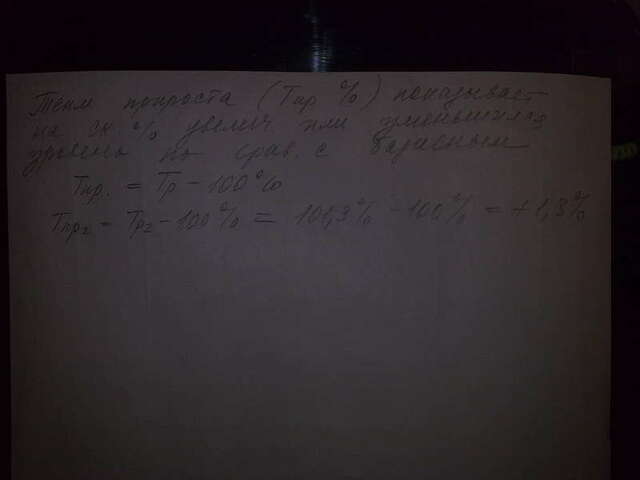 Темп прироста (Тпр %) показывает
на ск % увелич или уменьшился
уровень по срав. с базисным
Тпр. = Тр - 100%
Тпр2 = Тр2 - 100% = 101,3% - 100% = +1,3%